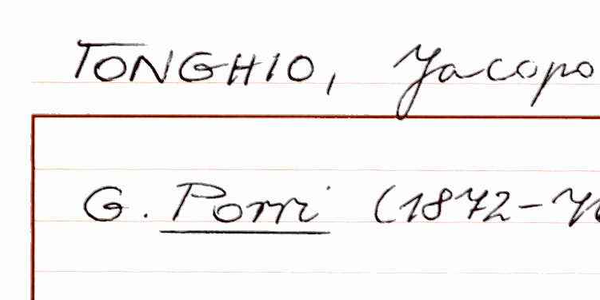 TONGHIO, Jacopo
G. Porri (1872-7